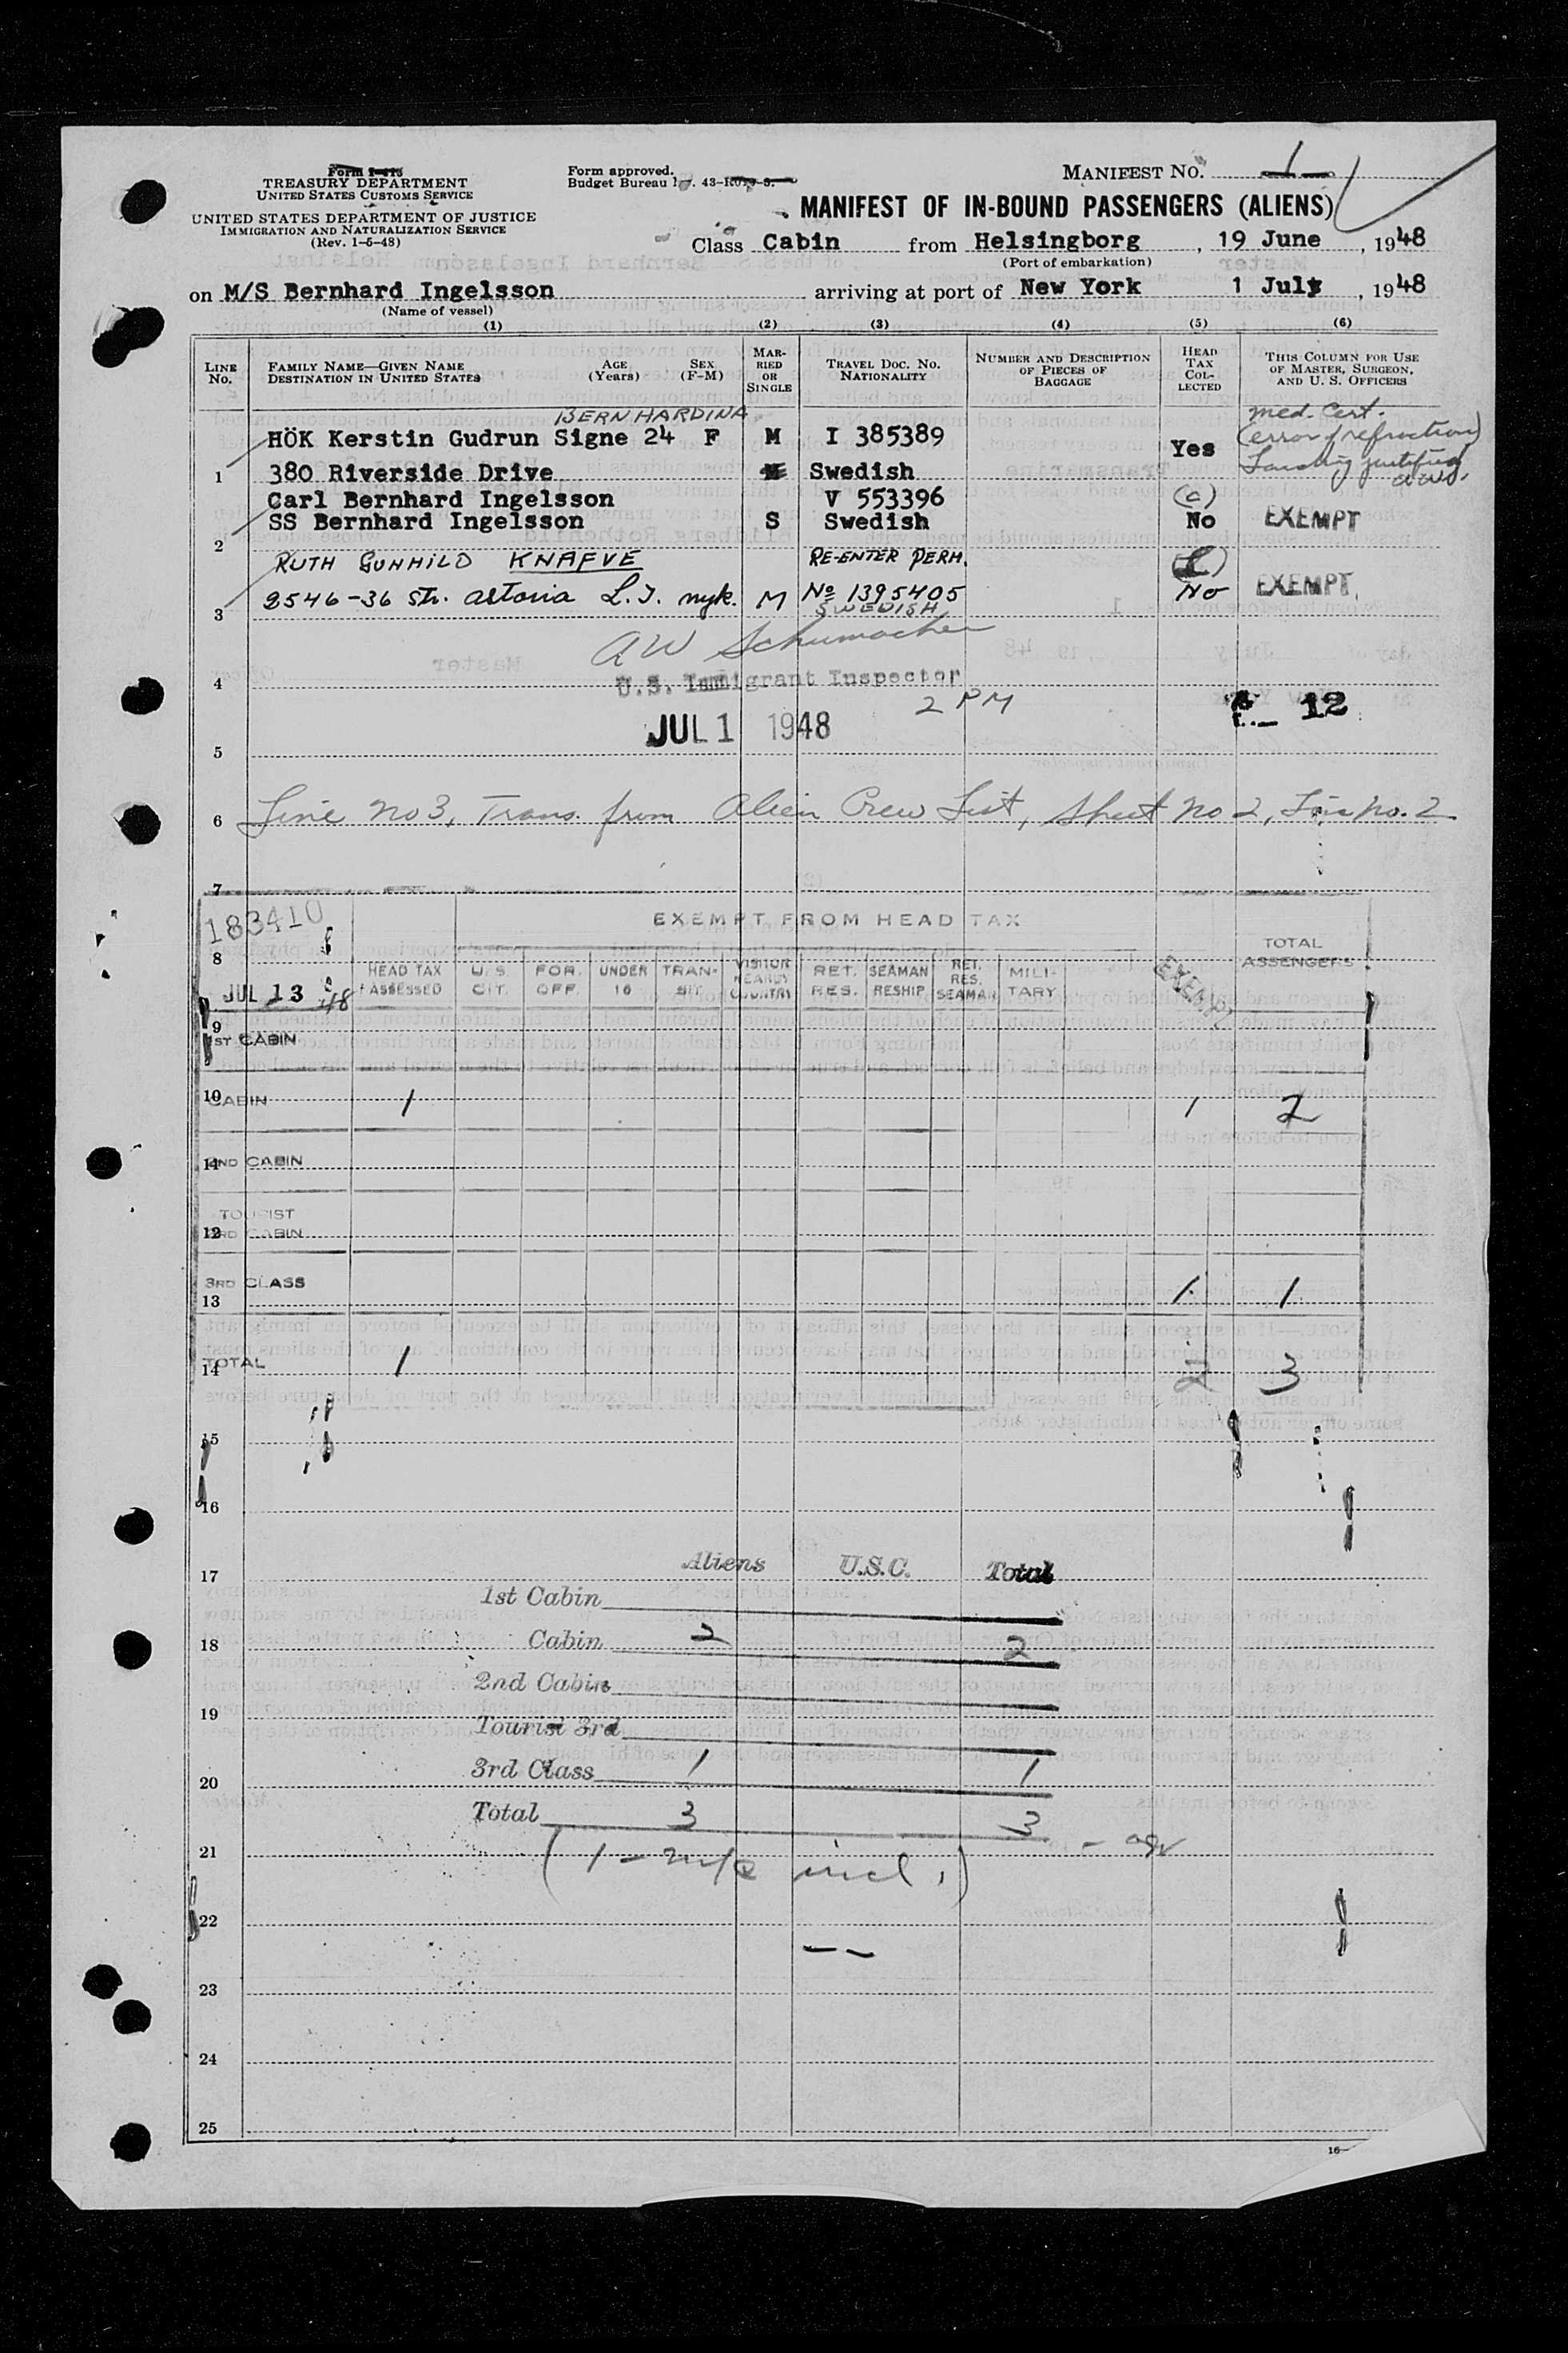 Form I-415
TREASURY DEPARTMENT
UNITED STATES CUSTOMS SERVICE
UNITED STATES DEPARTMENT OF JUSTICE
IMMIGRATION AND NATURALIZATION SERVICE
(Rev. 1-6-48)
Form approved.
Budget Bureau No. 43-
MANIFEST NO. 1
MANIFEST OF IN-BOUND PASSENGERS (ALIENS)
Class Cabin from Helsingborg, 19 June, 1948
(Port of embarkation)
on M/S Bernhard Ingelsson arriving at port of New York 1 July, 1948
(Name of vessel)
(1) (2) (3) (4) (5) (6)
LINE NO. FAMILY NAME—GIVEN NAME DESTINATION IN UNITED STATES AGE (Years) SEX (F-M) MARRIED OR SINGLE TRAVEL DOC. NO. NATIONALITY NUMBER AND DESCRIPTION OF PIECES OF BAGGAGE HEAD TAX COLLECTED THIS COLUMN FOR USE OF MASTER, SURGEON, AND U. S. OFFICERS
BERNHARDINA med. Cert.
HÖK Kerstin Gudrun Signe 24 F M I 385389 Yes (error of refraction)
1 380 Riverside Drive Swedish Landing justified
Carl Bernhard Ingelsson V 553396 (c)
2 SS Bernhard Ingelsson S Swedish No EXEMPT
RUTH GUNHILD KNAFVE RE-ENTER PERM.
3 2546-36 Str. Astoria L.I. nyk. M No 1395405 No EXEMPT
SWEDISH
AW Schumacher
4 U.S. Immigrant Inspector
2 PM 12
JUL 1 1948
5
6 Line no 3, Trans. from Alien Crew List, Sheet no 2, Line no. 2
7
183410 EXEMPT FROM HEAD TAX
8 HEAD TAX ASSESSED U.S. CIT. FOR. OFF. UNDER 16 TRANSIT VISITOR NEARBY COUNTRY RET. RES. SEAMAN RESHIP. RET. RES. SEAMAN MILITARY EXEMPT TOTAL PASSENGERS
JUL 13 48
9
1ST CABIN
10 CABIN 1 1 2
11 2ND CABIN
TOURIST
12 3RD CABIN
3RD CLASS 1 1
13
14 TOTAL 1 2 3
15
16
17 Aliens U.S.C. Total
1st Cabin
18 Cabin 2 2
2nd Cabin
19
Tourist 3rd
3rd Class 1 1
20
Total 3 3
21
22
23
24
25
16—